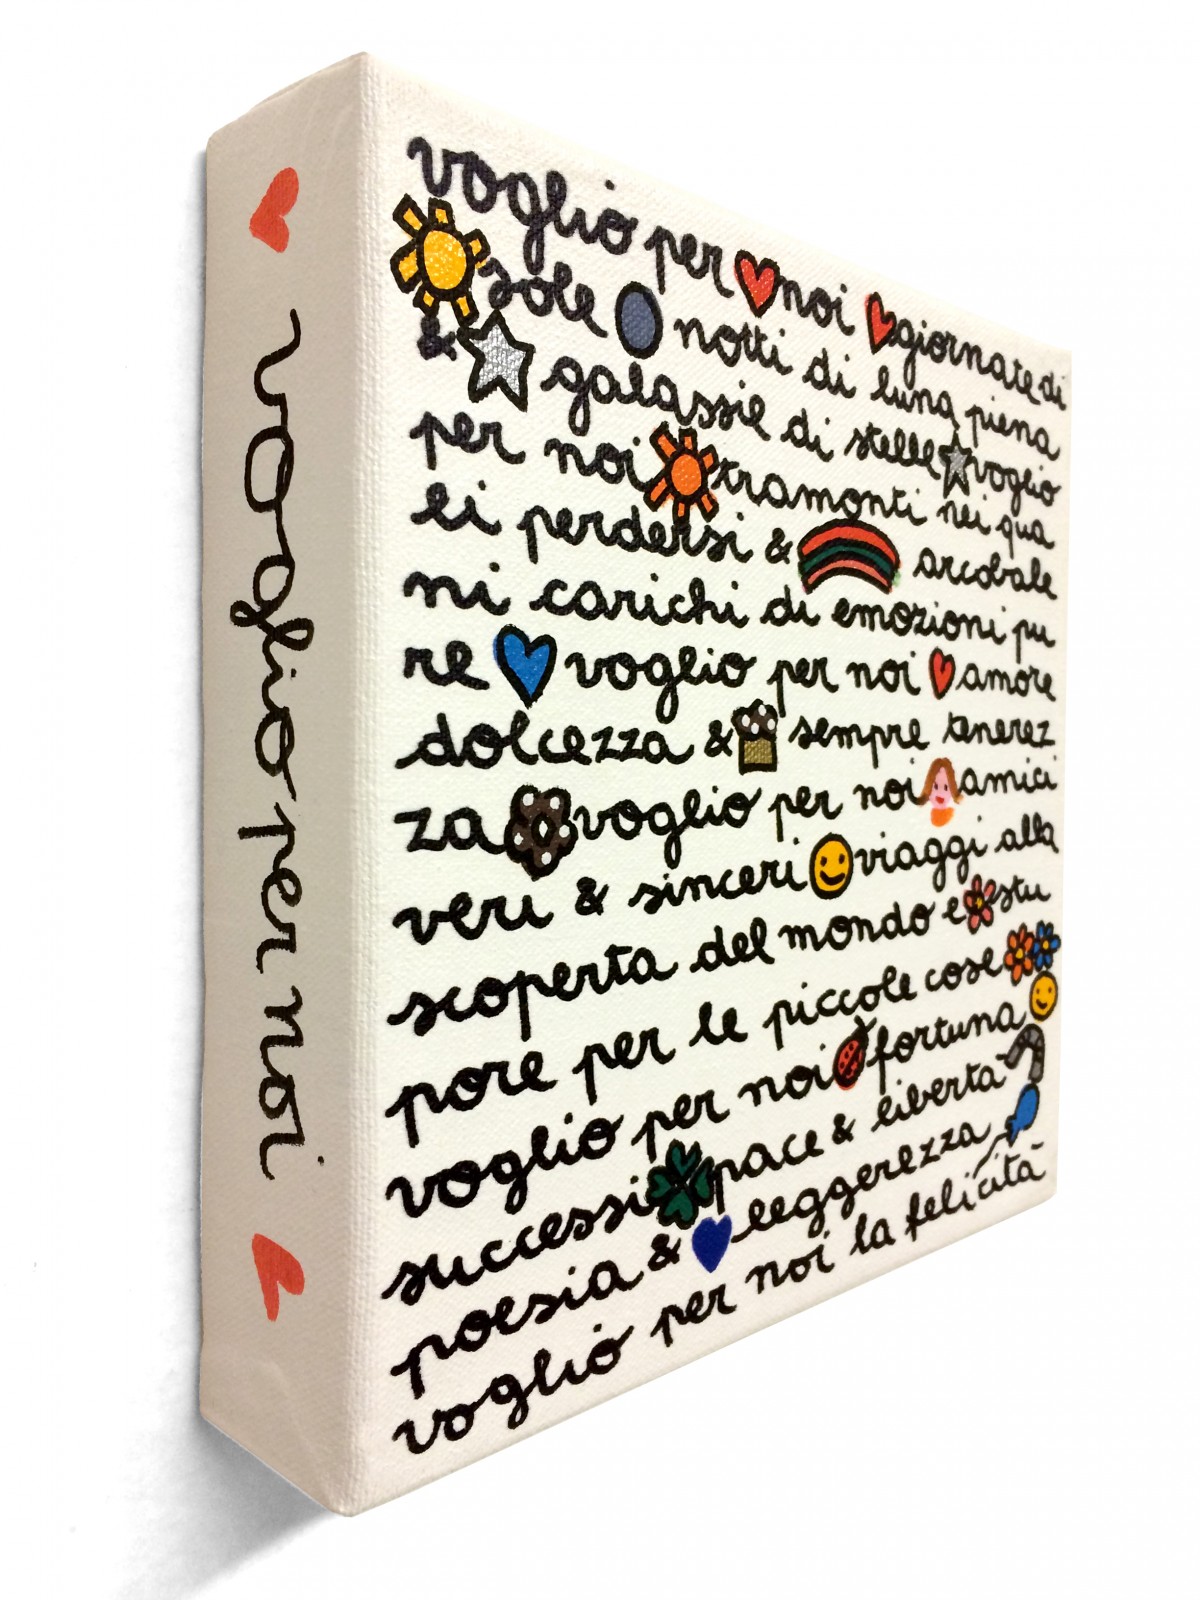 voglio per noi
voglio per noi giornate di
sole notti di luna piena
& galassie di stelle voglio
per noi tramonti nei qua
li perdersi & arcobale
ni carichi di emozioni pu
re voglio per noi amore
dolcezza & sempre tenerez
za voglio per noi amici
veri & sinceri viaggi alla
scoperta del mondo e stu
pore per le piccole cose
voglio per noi fortuna
successi pace & libertà
poesia & leggerezza
voglio per noi la felicità